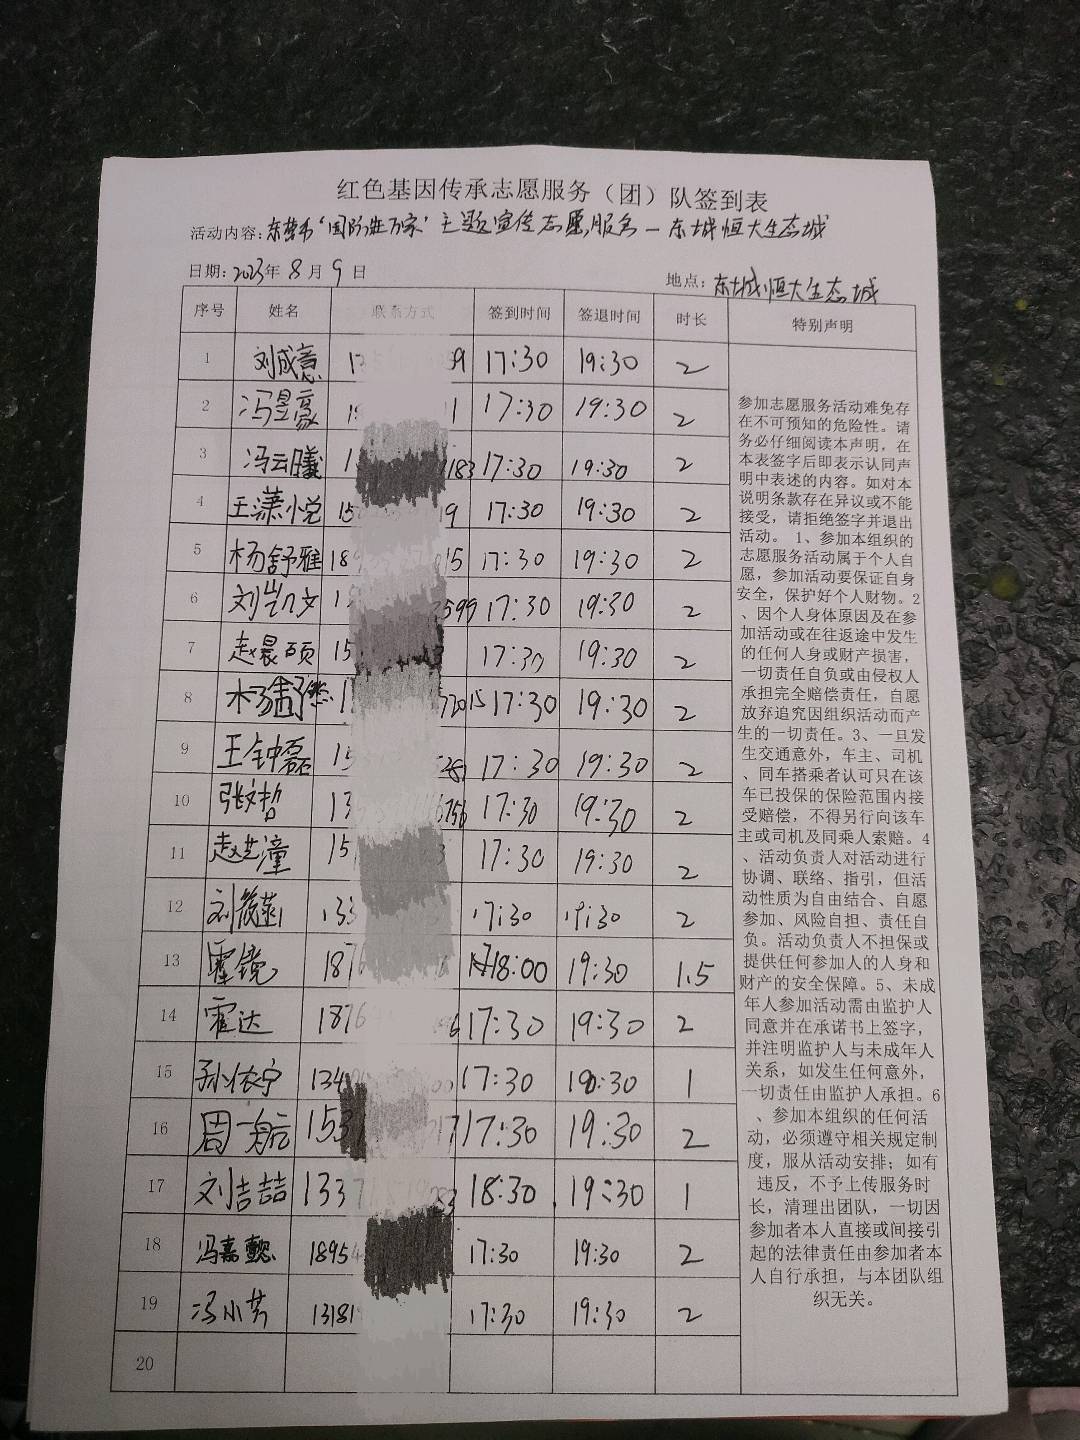 红色基因传承志愿服务（团）队签到表
活动内容：东营市‘国防进万家’主题宣传志愿服务－东城恒大生态城
日期：2023年8月9日 地点：东城恒大生态城
序号 姓名 联系方式 签到时间 签退时间 时长 特别声明
1 刘成意 17:30 19:30 2
2 冯昱豪 17:30 19:30 2
3 冯云曦 183 17:30 19:30 2
4 王潇悦 15 19 17:30 19:30 2
5 杨舒雅 189 15 17:30 19:30 2
6 刘凯文 599 17:30 19:30 2
7 赵晨硕 15 17:30 19:30 2
8 杨舒然 72015 17:30 19:30 2
9 王钟磊 15 17:30 19:30 2
10 张文哲 13 6756 17:30 19:30 2
11 赵艺潼 15 17:30 19:30 2
12 刘筱菡 133 17:30 19:30 2
13 霍镜 1876 18:00 19:30 1.5
14 霍达 1876 6 17:30 19:30 2
15 孙依宁 134 17:30 19:30 1
16 周一航 153 17 17:30 19:30 2
17 刘吉喆 1337 283 18:30 19:30 1
18 冯嘉懿 18954 17:30 19:30 2
19 冯小芳 13181 17:30 19:30 2
20
参加志愿服务活动难免存
在不可预知的危险性。请
务必仔细阅读本声明，在
本表签字后即表示认同声
明中表述的内容。如对本
说明条款存在异议或不能
接受，请拒绝签字并退出
活动。 1、参加本组织的
志愿服务活动属于个人自
愿，参加活动要保证自身
安全，保护好个人财物。2
、因个人身体原因及在参
加活动或在往返途中发生
的任何人身或财产损害，
一切责任自负或由侵权人
承担完全赔偿责任，自愿
放弃追究因组织活动而产
生的一切责任。3、一旦发
生交通意外，车主、司机
、同车搭乘者认可只在该
车已投保的保险范围内接
受赔偿，不得另行向该车
主或司机及同乘人索赔。4
、活动负责人对活动进行
协调、联络、指引，但活
动性质为自由结合、自愿
参加、风险自担、责任自
负。活动负责人不担保或
提供任何参加人的人身和
财产的安全保障。5、未成
年人参加活动需由监护人
同意并在承诺书上签字，
并注明监护人与未成年人
关系，如发生任何意外，
一切责任由监护人承担。6
、参加本组织的任何活
动，必须遵守相关规定制
度，服从活动安排；如有
违反，不予上传服务时
长，清理出团队，一切因
参加者本人直接或间接引
起的法律责任由参加者本
人自行承担，与本团队组
织无关。